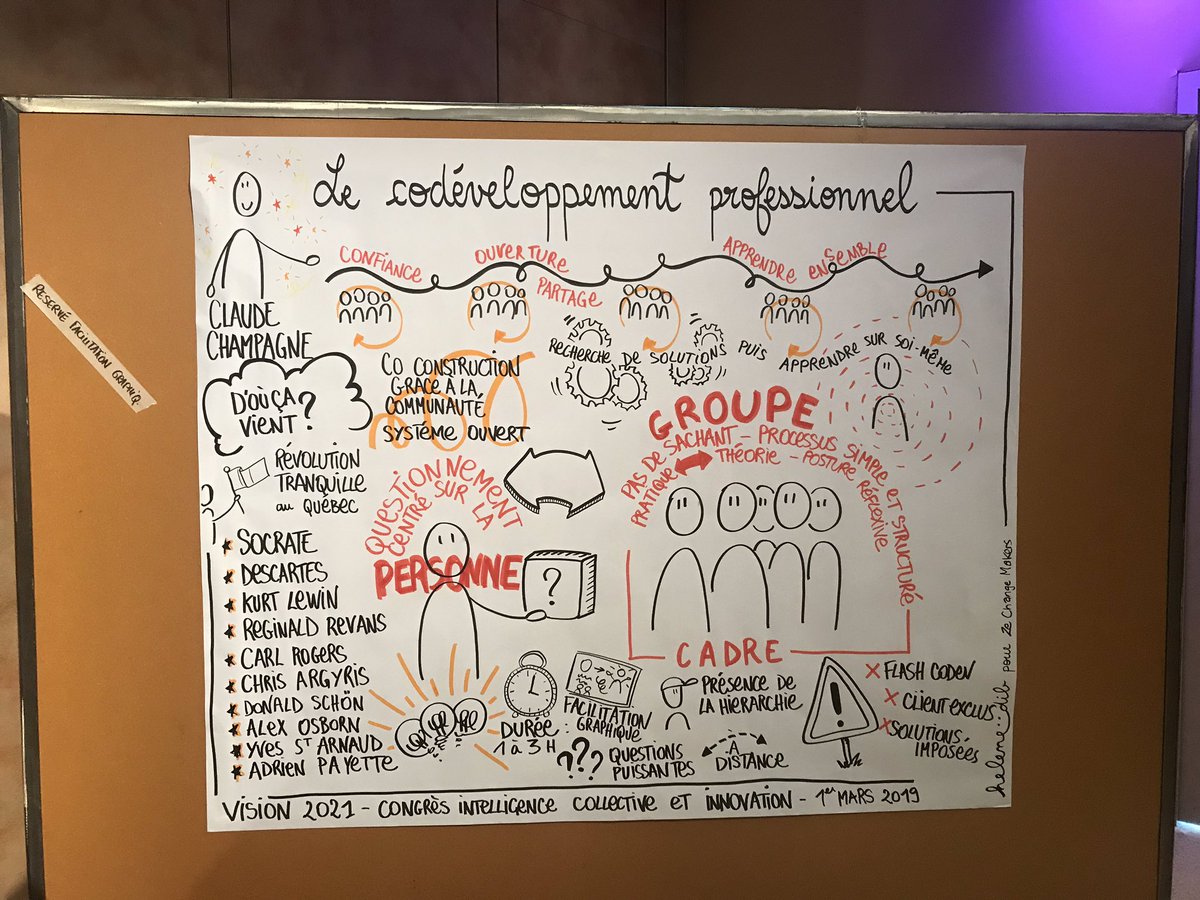 Le codéveloppement professionnel
CONFIANCE
OUVERTURE
PARTAGE
APPRENDRE ENSEMBLE
CLAUDE
CHAMPAGNE
RESERVÉ FACILITATION GRAPHIQ
D'OÙ ÇA
VIENT ?
CO CONSTRUCTION
GRACE À LA
COMMUNAUTÉ
SYSTÈME OUVERT
RECHERCHE DE SOLUTIONS PUIS
APPRENDRE SUR SOI-MÊME
RÉVOLUTION
TRANQUILLE
AU QUÉBEC
SOCRATE
DESCARTES
KURT LEWIN
REGINALD REVANS
CARL ROGERS
CHRIS ARGYRIS
DONALD SCHÖN
ALEX OSBORN
YVES ST ARNAUD
ADRIEN PAYETTE
QUESTIONNEMENT
CENTRÉ SUR LA
PERSONNE
?
GROUPE
PAS DE SACHANT - PROCESSUS SIMPLE ET STRUCTURÉ
PRATIQUE THÉORIE - POSTURE RÉFLEXIVE
CADRE
DURÉE :
1 à 3 H
FACILITATION
GRAPHIQUE
??? QUESTIONS
PUISSANTES
PRÉSENCE DE
LA HIERARCHIE
À
DISTANCE
!
X FLASH CODEV
X CLIENT EXCLUS
X SOLUTIONS
IMPOSÉES
helene..dib pour Ze Change Makers
VISION 2021 - CONGRÈS INTELLIGENCE COLLECTIVE ET INNOVATION - 1er MARS 2019